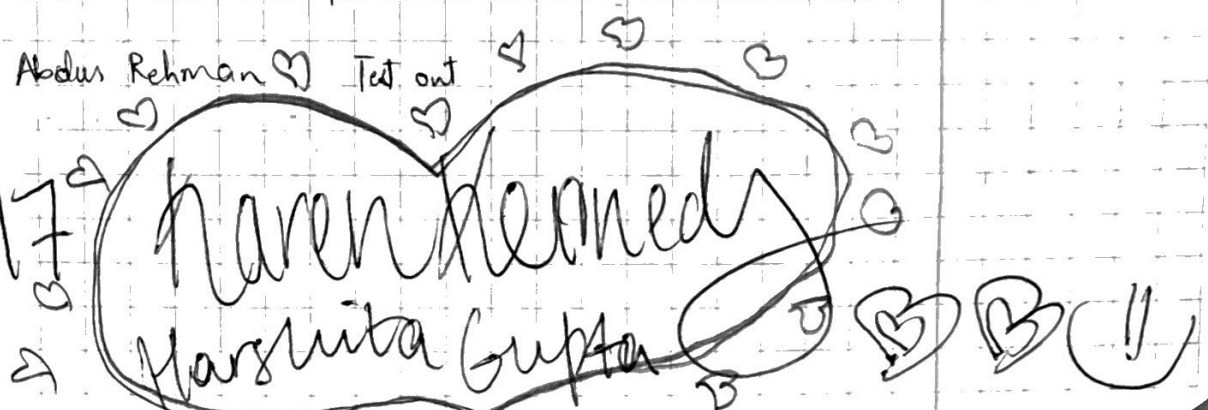 Abdus Rehman Test out
17
Karen Kennedy
Harshita Gupta